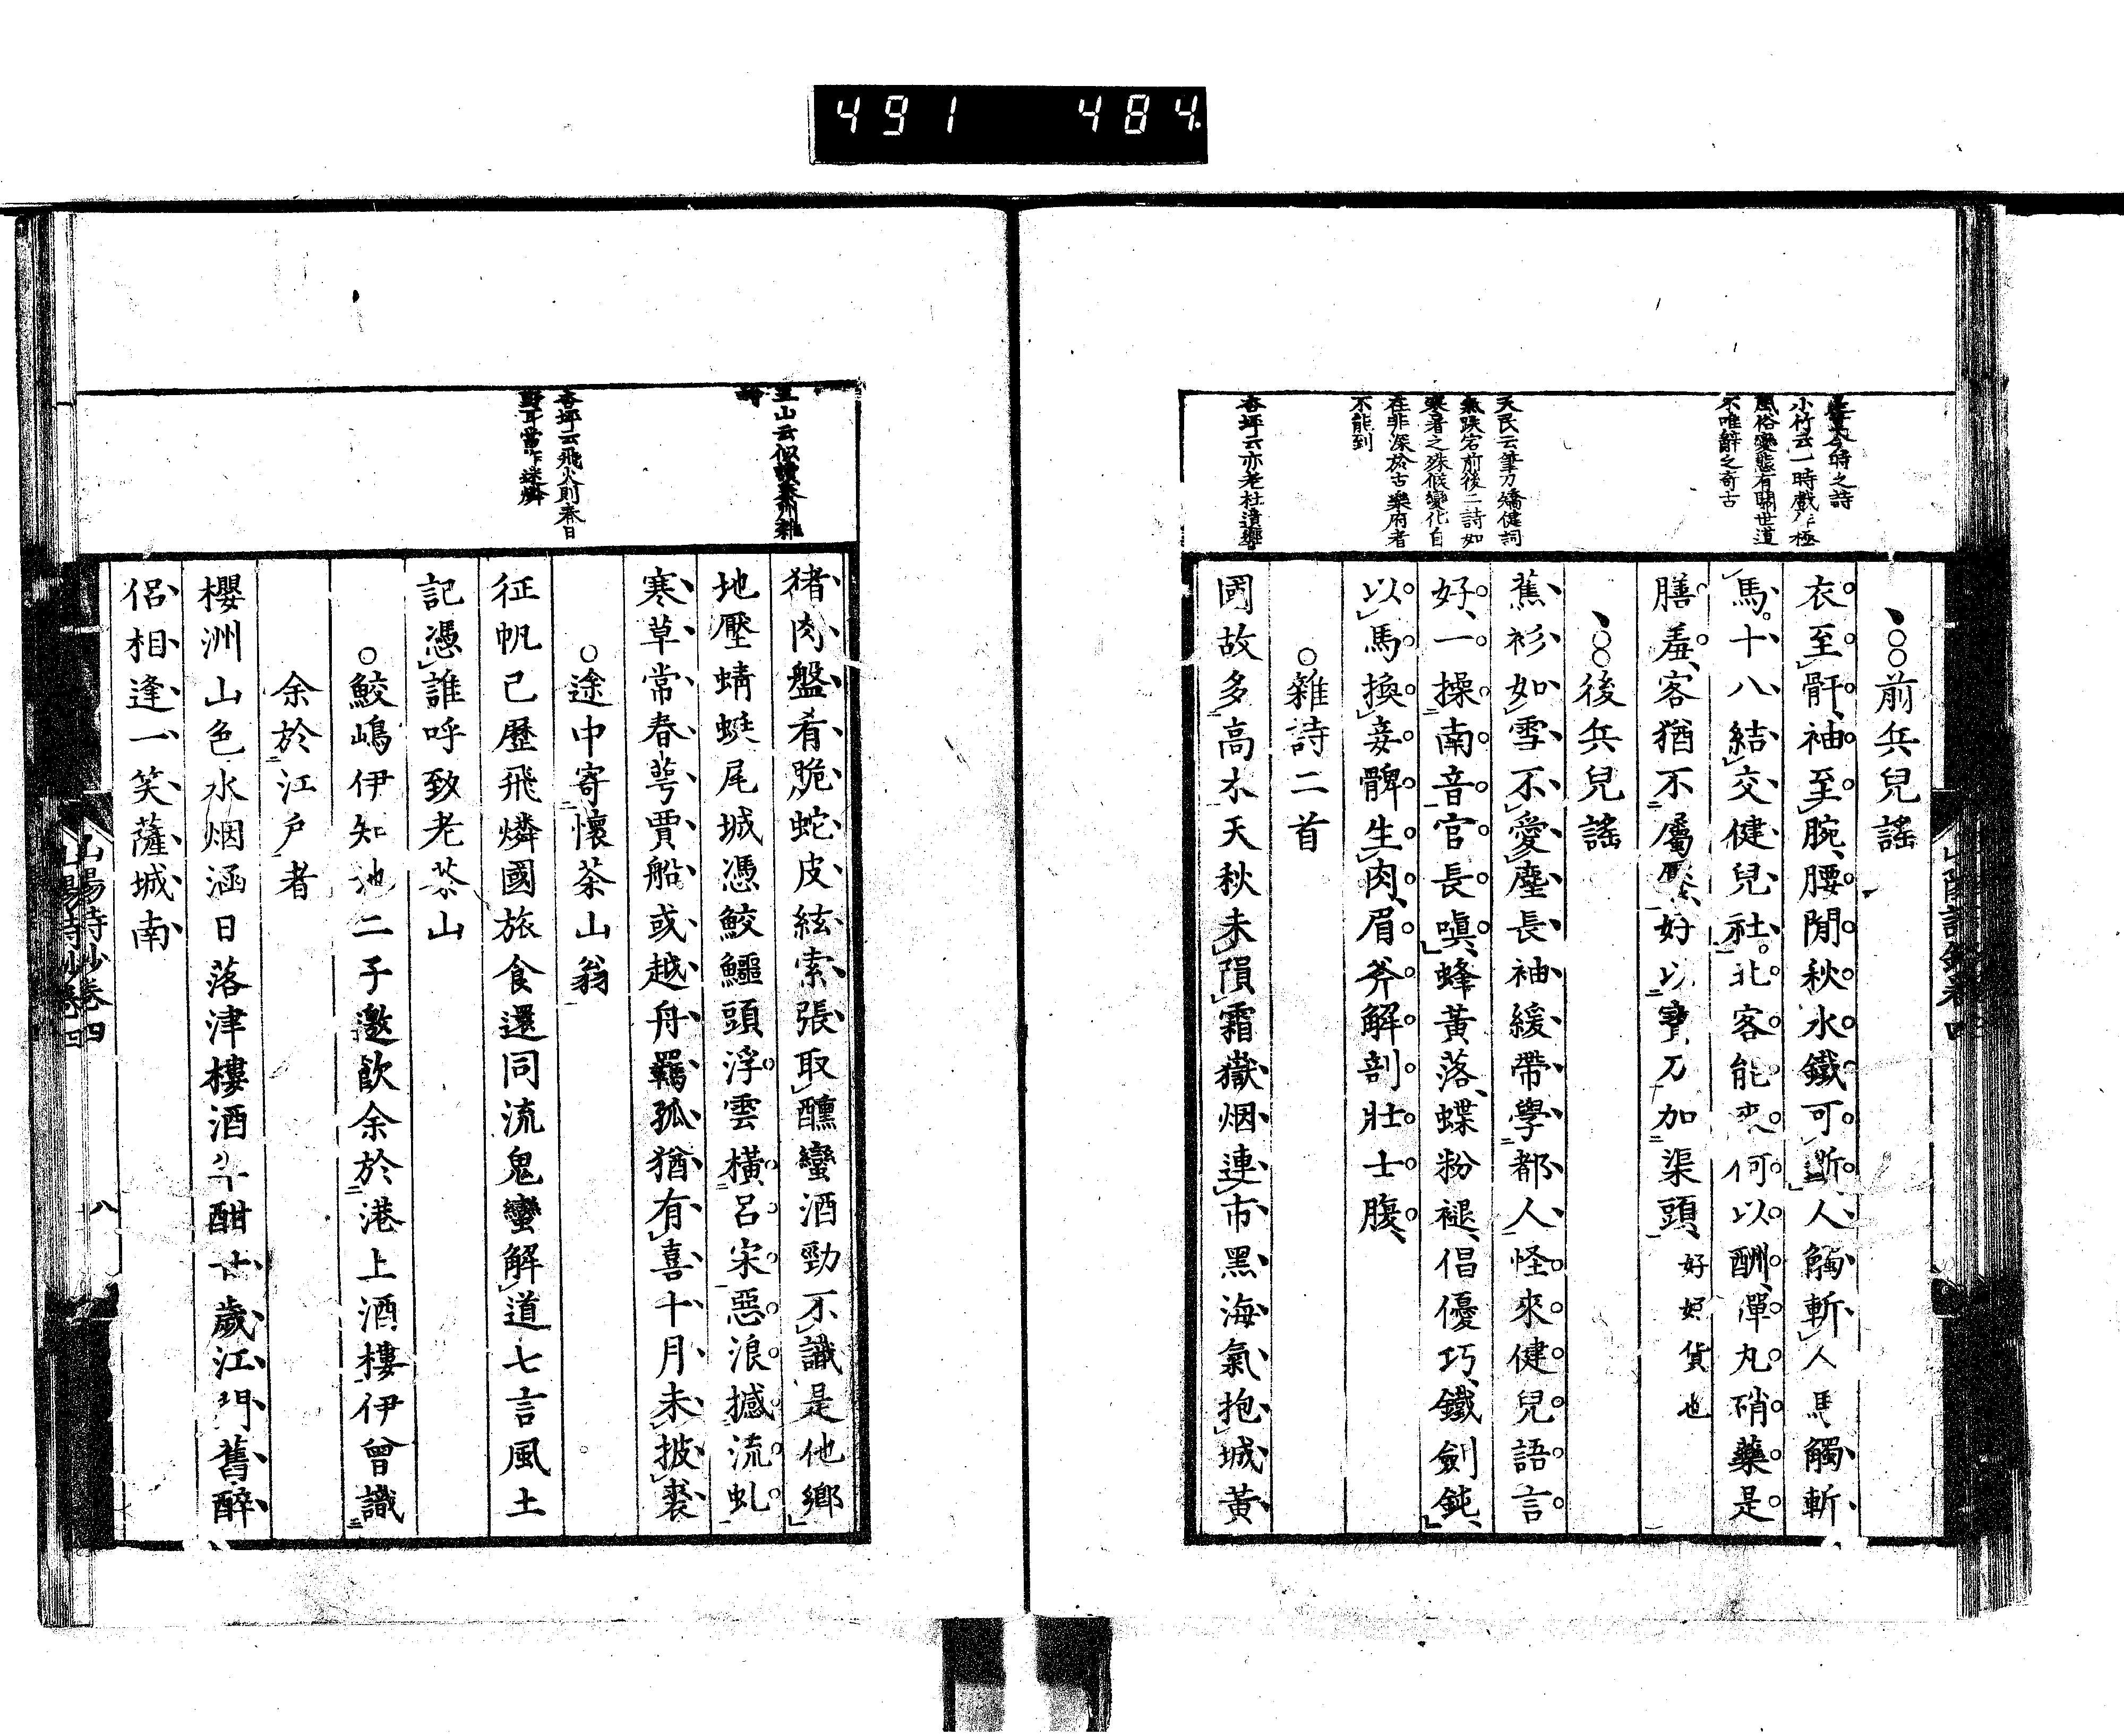 491 484
今時之詩
小竹云一時戲作極
風俗變態有關世道
不唯辭之奇古
天民云筆力矯健詞
氣跌宕前後二詩如
寒暑之殊候變化自
在非深於古樂府者
不能到
杏坪云亦老杜遺響
前兵兒謠
衣至骭袖至腕腰閒秋水鐵可斷人觸斬人馬觸斬
馬十八結交健兒社北客能來何以酬彈丸硝藥是
膳羞客猶不屬饜好以寶刀加渠頭 好好貨也
後兵兒謠
蕉衫如雪不愛塵長袖緩帶學都人怪來健兒語言
好一操南音官長嗔蜂黃落蝶粉褪倡優巧鐵劍鈍
以馬換妾髀生肉眉斧解剖壯士腹
雜詩二首
國故多高木天秋未隕霜嶽烟連市黑海氣抱城黃
山陽詩鈔卷四
杏坪云飛火則春日
猪肉盤肴脆蛇皮絃索張取醺蠻酒勁不識是他鄉
地壓蜻蜓尾城憑鮫鱷頭浮雲橫呂宋惡浪撼流虬
寒草常春萼賈船或越舟羈孤猶有喜十月未披裘
途中寄懷茶山翁
征帆已歷飛燐國旅食還同流鬼蠻解道七言風土
記憑誰呼致老茶山
鮫嶋伊知地二子邀飲余於港上酒樓伊曾識
余於江戶者
櫻洲山色水烟涵日落津樓酒半酣廿歲江門舊醉
侶相逢一笑薩城南
山陽詩鈔卷四
八